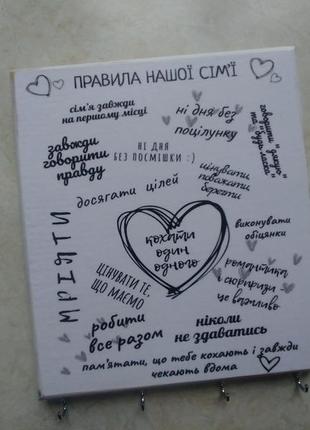 ПРАВИЛА НАШОЇ СІМ'Ї
сім'я завжди
на першому місці
ні дня без
поцілунку
завжди
говорити
правду
НЕ ДНЯ
БЕЗ ПОСМІШКИ :)
цінувати,
поважати
берегти
досягати цілей
МРІЯТИ
кохати
один
одного
виконувати
обіцянки
ЦІНУВАТИ ТЕ,
ЩО МАЄМО
романтика
і сюрпризи
це важливо
робити
все разом
ніколи
не здаватись
пам'ятати, що тебе кохають і завжди
чекають вдома